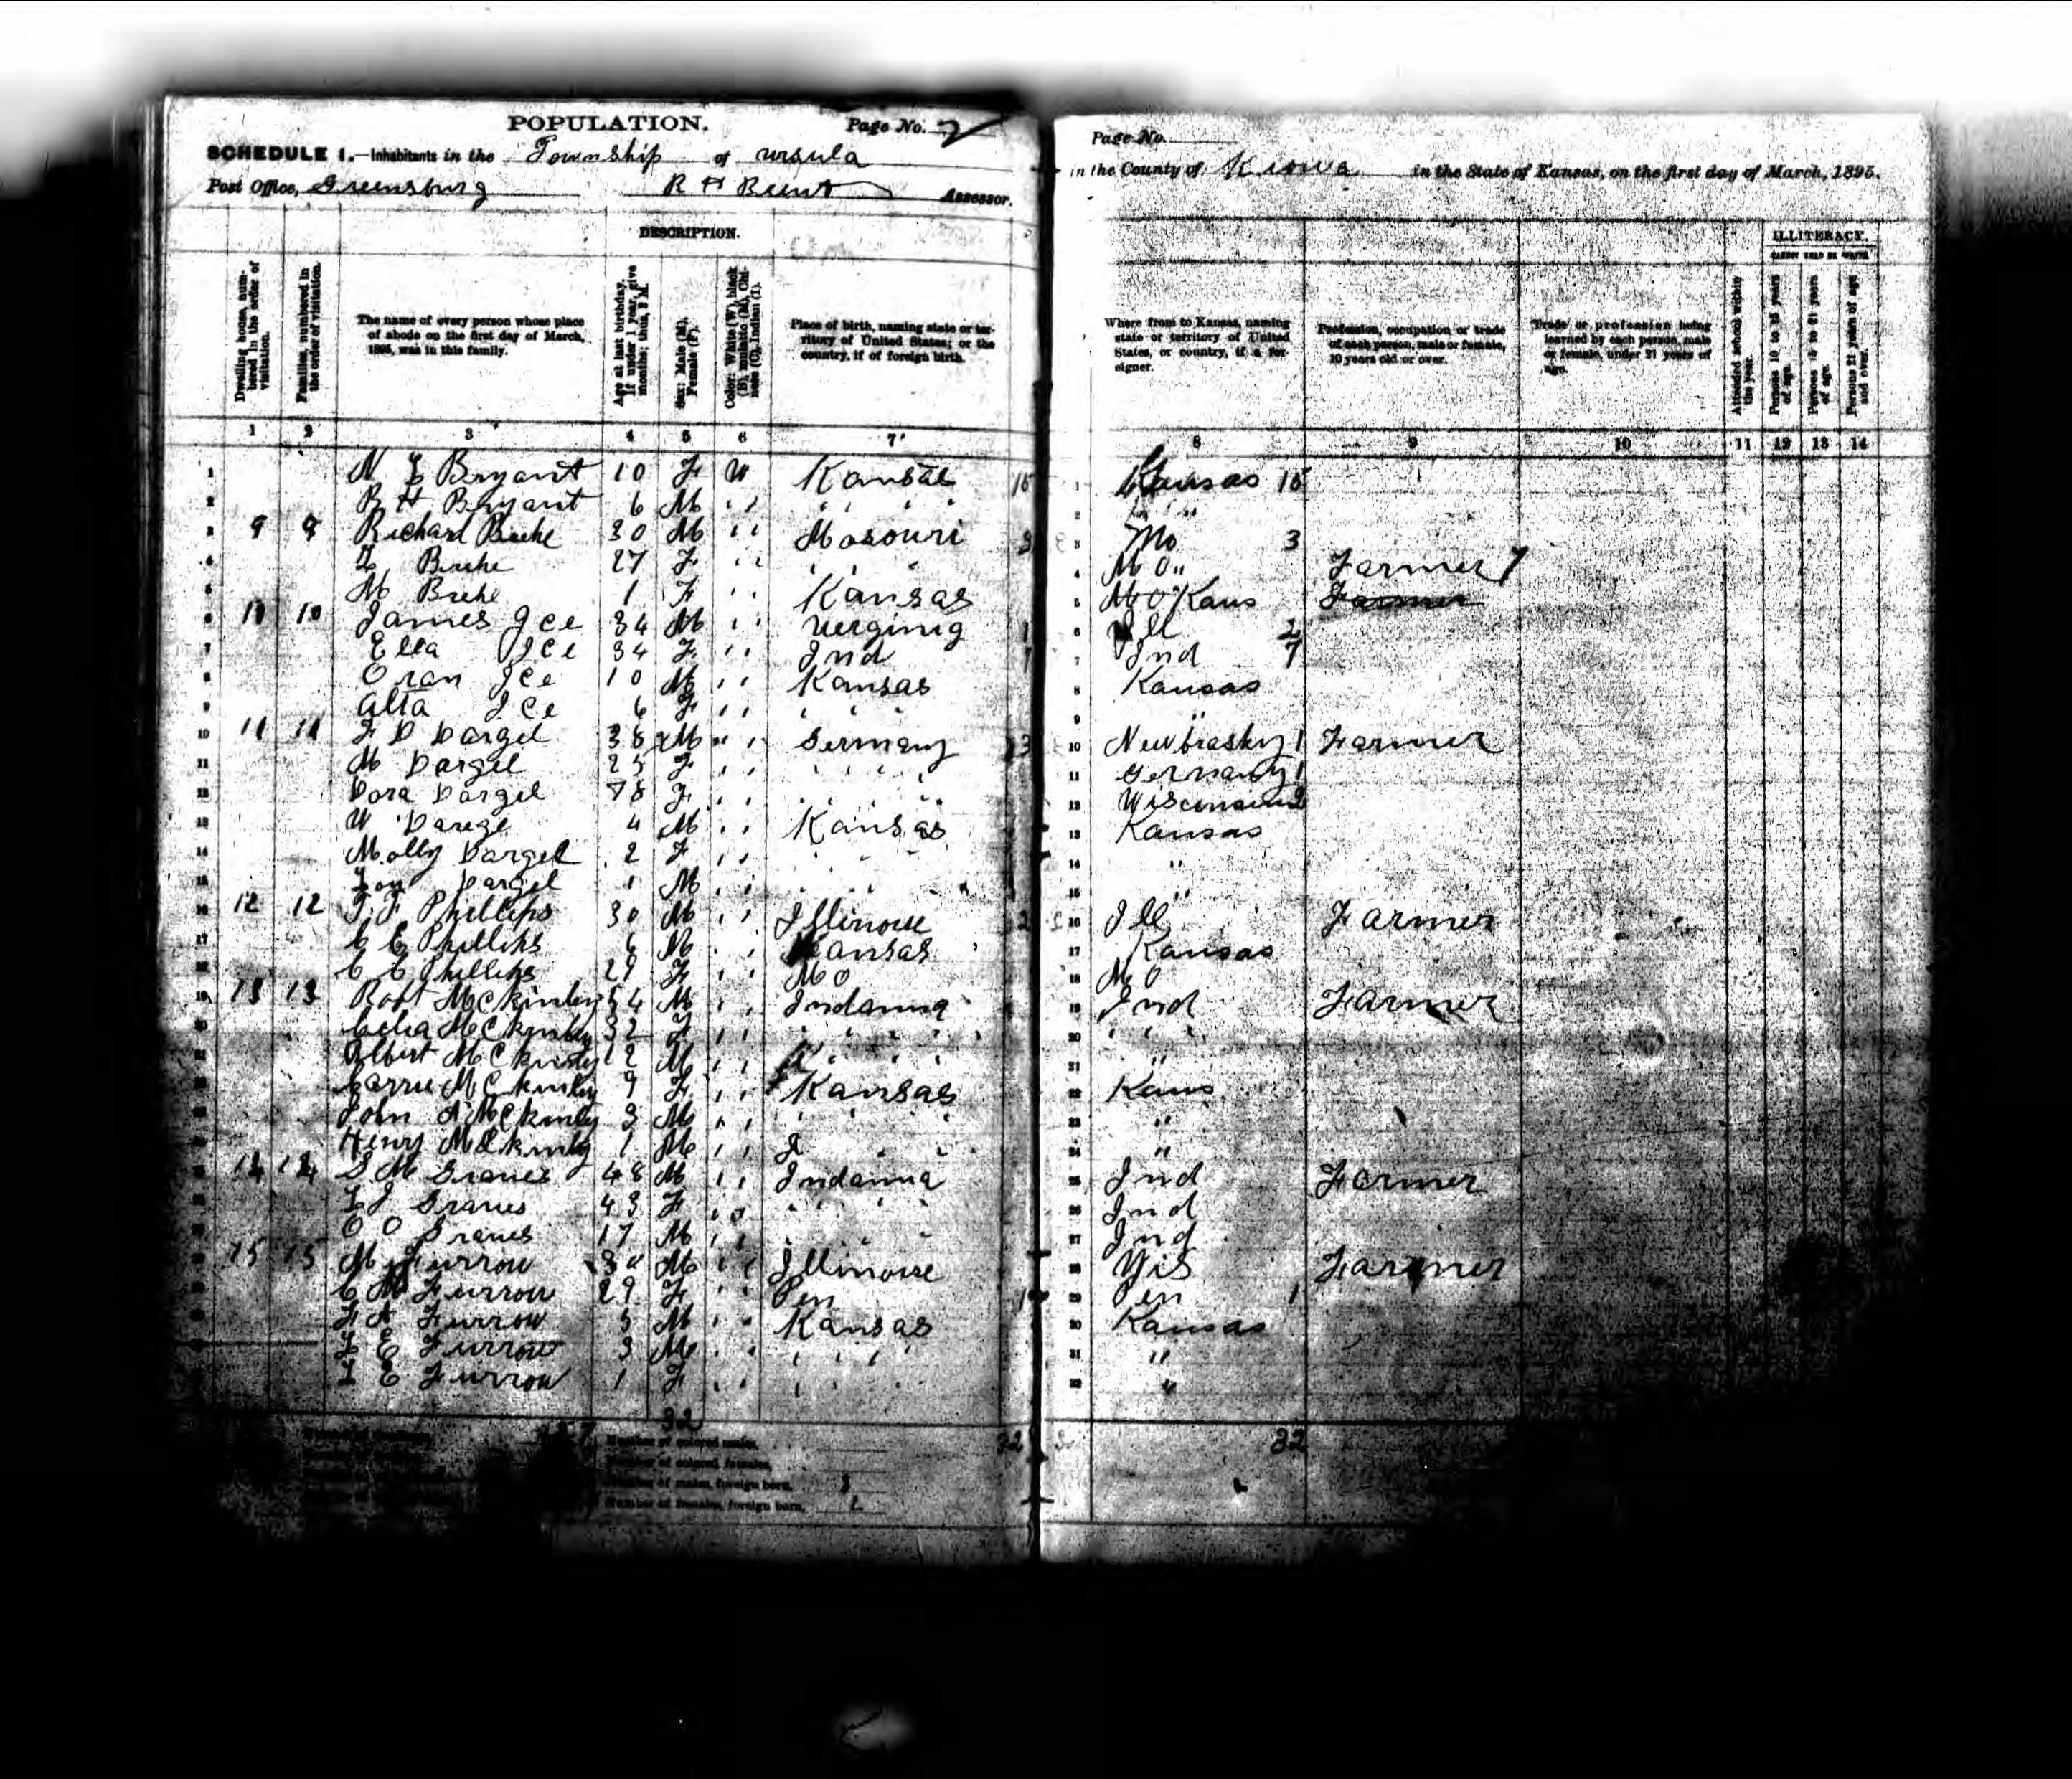 POPULATION. Page No. 2
SCHEDULE 1.—Inhabitants in the Township of Ursula
Post Office, Greensburg R H Assessor.
DESCRIPTION.
Dwelling house, numbered in the order of visitation.
Families, numbered in the order of visitation.
The name of every person whose place of abode on the first day of March, 1895, was in this family.
Age at last birthday. If under 1 year, give months; thus, 3 M.
Sex: Male (M), Female (F).
Color: White (W) black (B), mulatto (M), Chinese (C), Indian (I).
Place of birth, naming state or territory of United States; or the country, if of foreign birth.
1 2 3 4 5 6 7
1 N E Bryant 10 F W Kansas 15
2 B H Bryant 6 M " " " "
3 9 9 Richard 30 M " " Mosouri 3
4 27 F " " "
5 M 1 F " " Kansas
6 10 10 James Ice 34 M " " Verginia 1
7 Ella Ice 34 F " " Ind 7
8 Oran Ice 10 M " " Kansas
9 Alta Ice 6 F " " " " "
10 11 11 F D Dargel 38 M " " Germany 3
11 M Dargel 25 F " " " " " "
12 Dora Dargel 78 F " " " " "
13 W Daregl 4 M " " Kansas
14 Molly Dargel 2 F " " " " "
15 Dargel 1 M " " " " "
16 12 12 F. F. Phillips 30 M " " Illinoise 2
17 C E Phillips 6 M " " Kansas
18 C C Phillips 27 F " " Mo
19 13 13 Robt McKinley 54 M " " Indanna
20 Celia McKinley 32 F " " " " " "
21 Albert McKinley 12 M " " " " "
22 Carrie McKinley 9 F " " Kansas
23 John A McKinley 3 M " " " " "
24 Henry McKinley 1 M " " " "
25 14 14 S M Graves 48 M " " Indanna
26 L J Graves 43 F " " " " "
27 O O Graves 17 M " " " " "
28 15 15 M Furrow 30 M " " Illinoise
29 C M Furrow 29 F " " Pen 1
30 F A Furrow 5 M " " Kansas
L E Furrow 3 M " " " " "
I E Furrow 1 F " " " " "
32
Number of colored males,
Number of colored females, 32
Number of males, foreign born, 1
Number of females, foreign born, 2
Page No.
in the County of Kiowa in the State of Kansas, on the first day of March, 1895.
ILLITERACY.
CANNOT READ OR WRITE
Where from to Kansas, naming state or territory of United States, or country, if a foreigner.
Profession, occupation or trade of each person, male or female, 10 years old or over.
Trade or profession being learned by each person, male or female, under 21 years of age.
Attended school within the year.
Persons 10 to 15 years of age.
Persons 15 to 21 years of age.
Persons 21 years of age and over.
8 9 10 11 12 13 14
1 Kansas 15
2 " "
3 Mo 3
4 Mo " Farmer 7
5 Mo Kans Farmer
6 Ill 2
7 Ind 7
8 Kansas
9 "
10 Newbrasky 1 Farmer
11 Germany 1
12 Wisconsin 2
13 Kansas
14 "
15 "
16 Ill Farmer
17 Kansas
18 Mo
19 Ind Farmer
20 " " "
21 "
22 Kans
23 "
24 "
25 Ind Farmer
26 Ind
27 Ind
28 Wis Farmer
29 Pen 1
30 Kansas
31 "
32 "
32